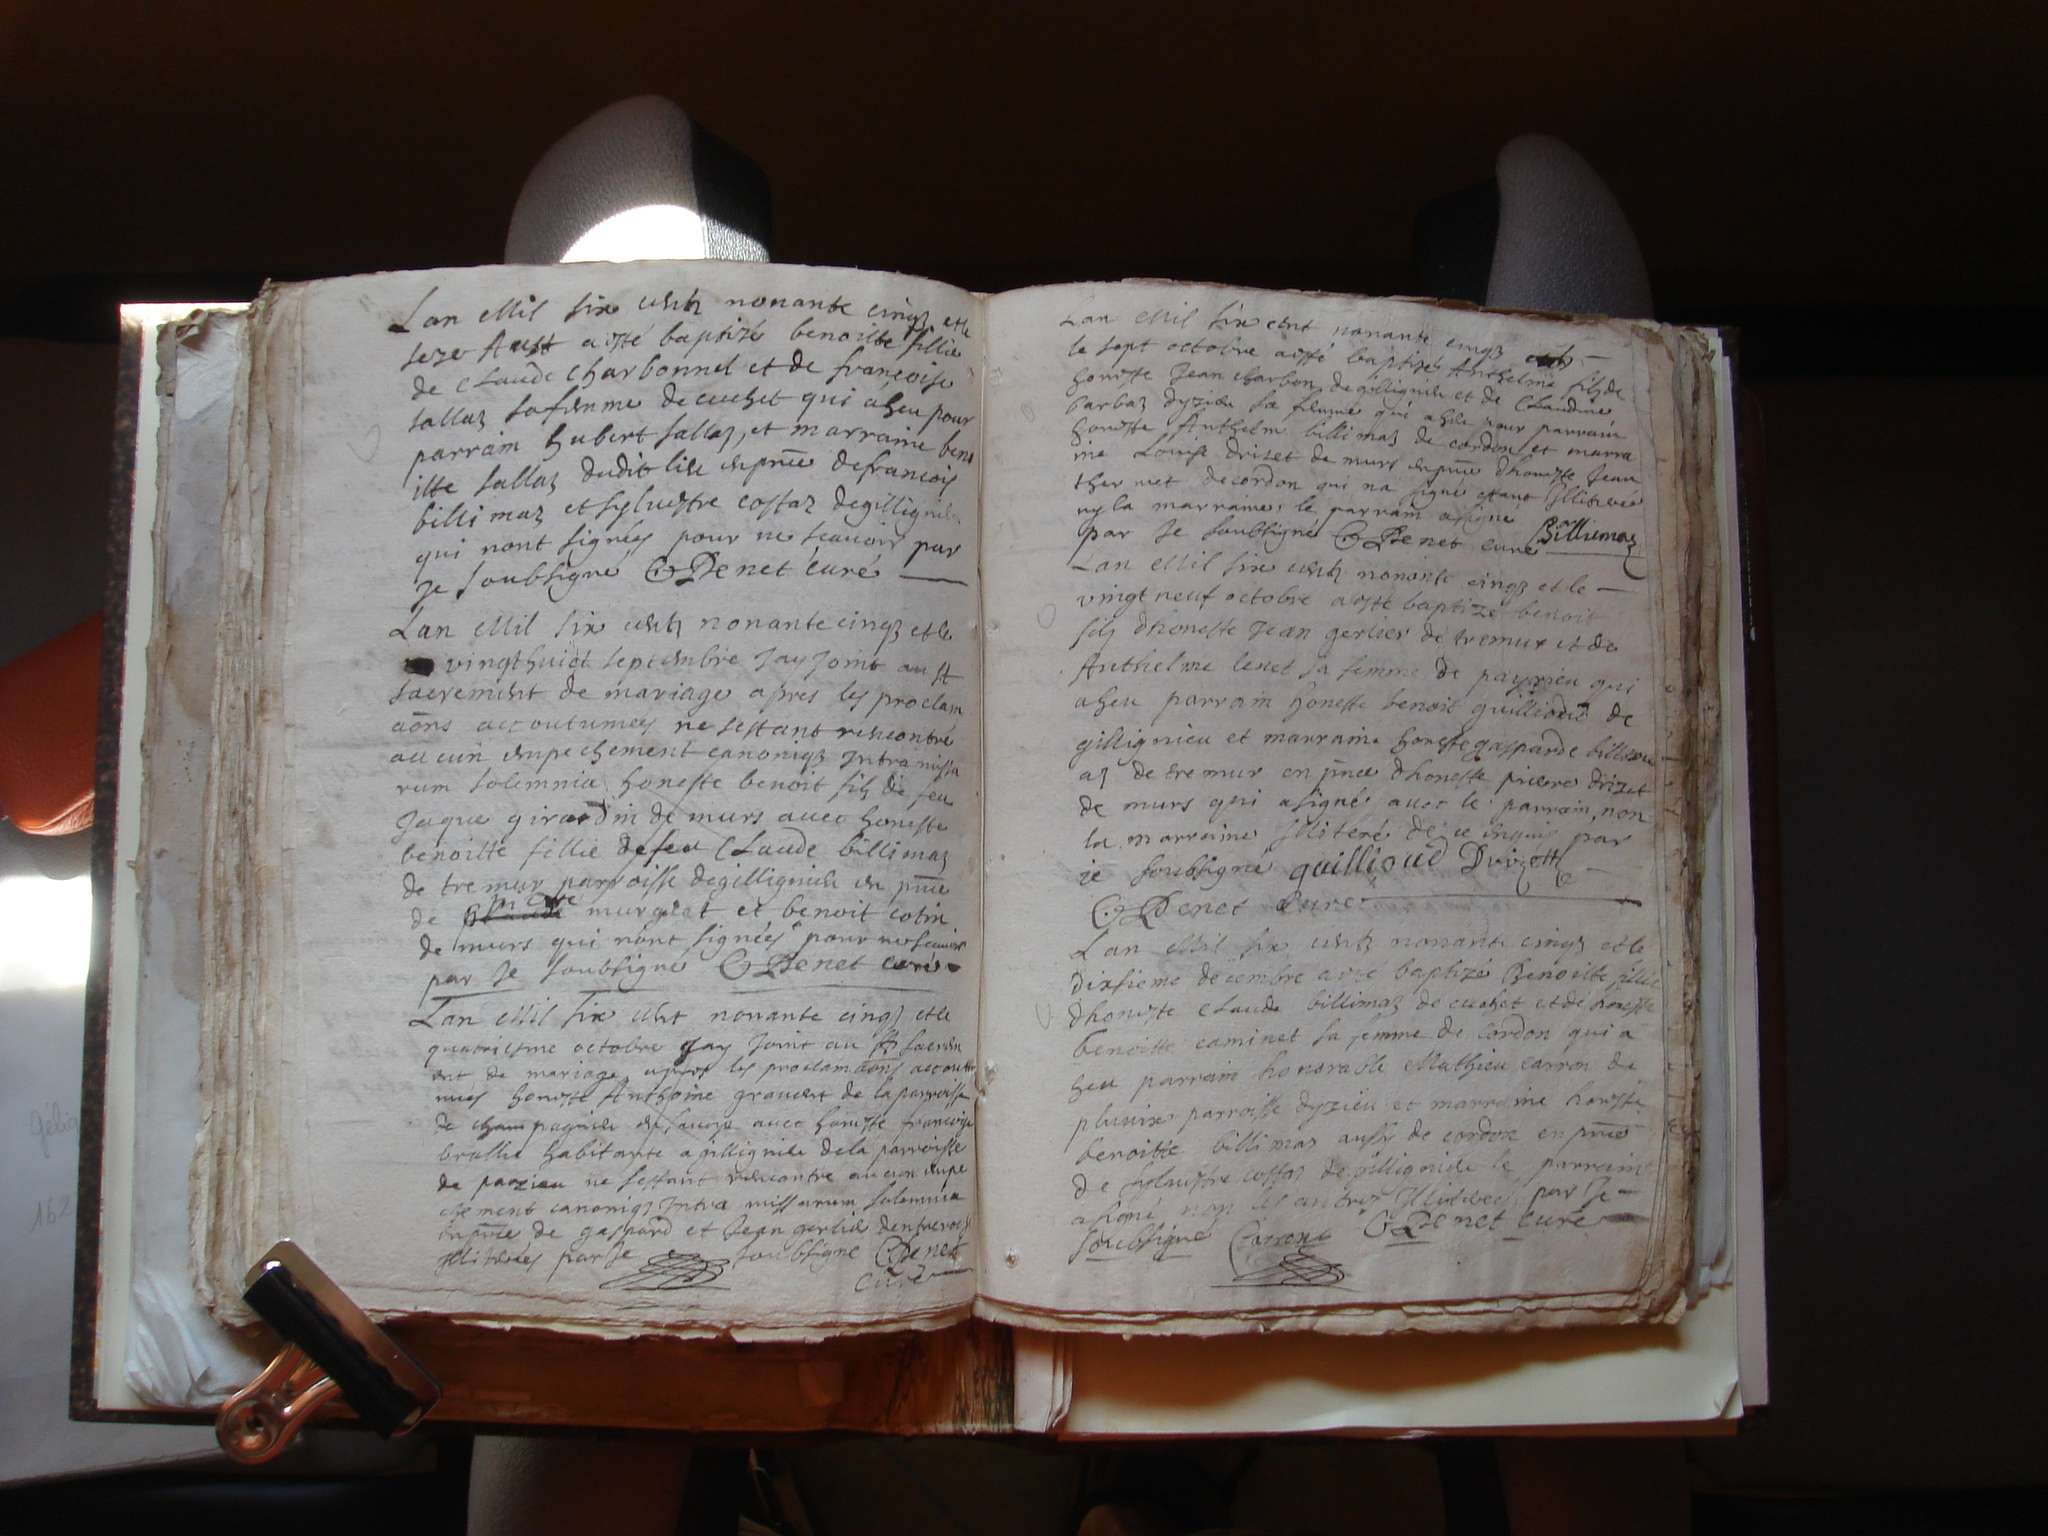 Lan Mil six cents nonante cinqz et le
seze Aust a esté baptizé benoitte fillie
de Claude Charbonnel et de françoise
sallaz sa femme de cuchet qui a heu pour
parrain hubert sallaz, et marraine beno
itte sallaz dudit lieu en pnce de francois
billimaz et sylvestre costaz de gillignieu
qui nont signées pour ne scavoir par
Je soubsigné C Denet curé
Lan Mil six cents nonante cinqz et le
vingthuict septembre Jay Joint au St
sacrement de mariage apres les proclam
aons accoutumeez ne sestant rencontré
aucun empechement canoniqz Intra missa
rum solemnia honeste benoit filz de feu
Jaque girardin de murs avec honeste
benoitte fillie de feu Claude billimaz
de tremur parroisse de gillignieu en pnce
de murgeat et benoit cotin
de murs qui nont signées pour ne scavoir
par Je soubsigné C Denet curé
Lan Mil six cent nonante cinqz et le
quatriesme octobre Jay Joint au St sacrem
ent de mariage apres les proclamaons accoutu
mées honeste Anthoine gravert de la parroisse
de champagnieu en savoye avec honeste françoise
brallie habitante a gillignieu de la parroisse
de parzieu ne sestant rencontre aucun empe
chement canoniqz Intra missarum solemnia
en pnce de gaspard et Jean gerlier
Illiterées par Je soubsigné C Denet
curé
Lan Mil six cent nonante cinqz
le sept octobre a esté baptizé Anthelme filz de
honeste Jean charbon de gillignieu et de Claudine
barbaz dyzieu sa femme qui a heu pour parrain
honeste Anthelm billimaz de cordon et marra
ine Louise drizet de murs en pnce dhoneste Jean
thermet de cordon qui na signé estant Illiteré
ny la marraine, le parrain a signé
par Je soubsigné C Denet curé Billiemaz
Lan Mil six cents nonante cinqz et le
vingt neuf octobre a esté baptizé benoit
filz dhoneste Jean gerlier de tremur et de
Anthelme lenet sa femme de payzieu qui
a heu parrain honeste benoit guillioud de
gillignieu et marraine honeste gasparde billiem
az de tremur en pnce dhoneste pierre drizet
de murs qui a signé avec le parrain, non
la marraine Illiteré de ce enquis par
ie soubsigné guillioud Drizett
C Denet Curé
Lan Mil six cents nonante cinqz et le
dixsieme decembre a esté baptizé Benoitte fillie
dhoneste Claude billimaz de cuchet et de honeste
benoitte caminet sa femme de cordon qui a
heu parrain honorable Mathieu carron de
pluvix parroisse dyzieu et marraine honeste
benoitte billimaz aussi de cordon en pnce
de sylvestre costaz de gillignieu le parraint
a signé non les autres Illiterées par Je
soubsigné Carron C Denet curé